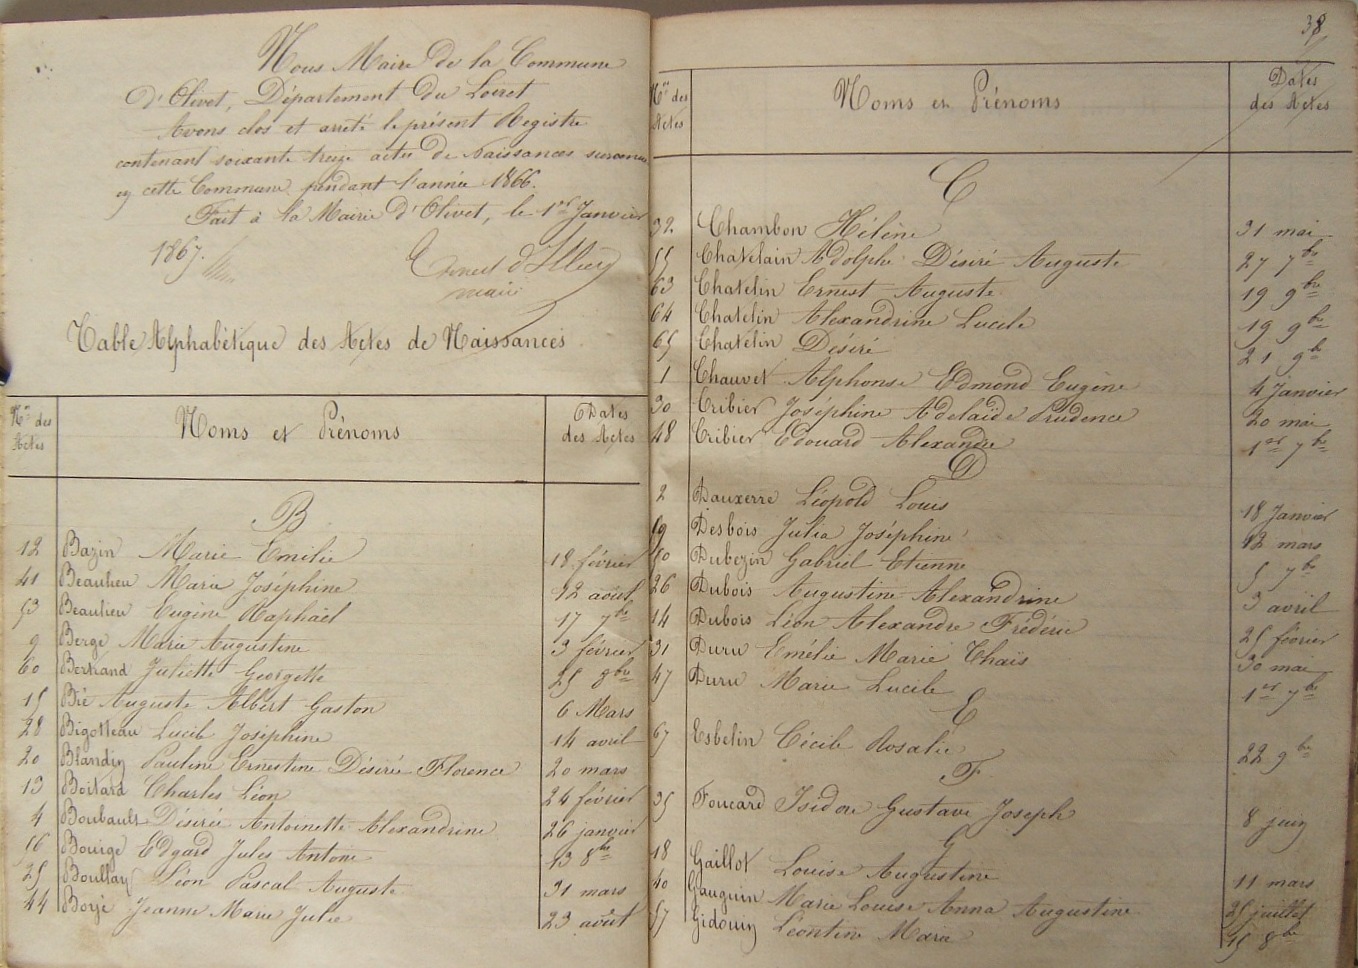 Nous Maire de la Commune
d'Olivet, Département du Loiret
Avons clos et arrêté le présent Registre
contenant soixante treize actes de Naissances survenues
en cette Commune pendant l'année 1866.
Fait à la Mairie d'Olivet, le 1er Janvier
1867.
maire
Table Alphabétique des Actes de Naissances
Nos des Actes Noms et Prénoms Dates des Actes
B
12 Bazin Marie Emilie 18 février
41 Beaulieu Marie Joséphine 12 août
53 Beaulieu Eugène Raphaël 17 7bre
9 Berge Marie Augustine 3 février
60 Bertrand Juliette Georgette 25 8bre
15 Bié Auguste Albert Gaston 6 Mars
28 Bigotteau Lucile Joséphine 14 avril
20 Blandin Pauline Ernestine Désirée Florence 20 mars
13 Boitard Charles Léon 24 février
4 Boubault Désirée Antoinette Alexandrine 26 janvier
56 Bouige Edgard Jules Antoine 13 8bre
25 Boullay Léon Pascal Auguste 31 mars
44 Borjé Jeanne Marie Julie 23 août
38
Nos des Actes Noms et Prénoms Dates des Actes
C
32 Chambon Hélène 31 mai
55 Chatelain Adolphe Désiré Auguste 27 7bre
63 Chatelin Ernest Auguste 19 9bre
64 Chatelin Alexandrine Lucile 19 9bre
65 Chatelin Désiré 21 9bre
1 Chauvet Alphonse Edmond Eugène 4 Janvier
30 Cribier Joséphine Adelaïde Prudence 20 mai
48 Cribier Edouard Alexandre 1er 7bre
D
2 Dauxerre Léopold Louis 18 Janvier
19 Desbois Julia Joséphine 12 mars
50 Dubezin Gabriel Etienne 5 7bre
26 Dubois Augustine Alexandrine 3 avril
14 Dubois Léon Alexandre Frédéric 25 février
31 Duru Emélie Marie Thaïs 30 mai
47 Duru Marie Lucile 1er 7bre
E
67 Esbelin Cécile Rosalie 22 9bre
F
35 Foucard Isidore Gustave Joseph 8 juin
G
18 Gaillot Louise Augustine 11 mars
40 Gauguin Marie Louise Anna Augustine 25 juillet
57 Gidouin Léontine Marie 15 8bre